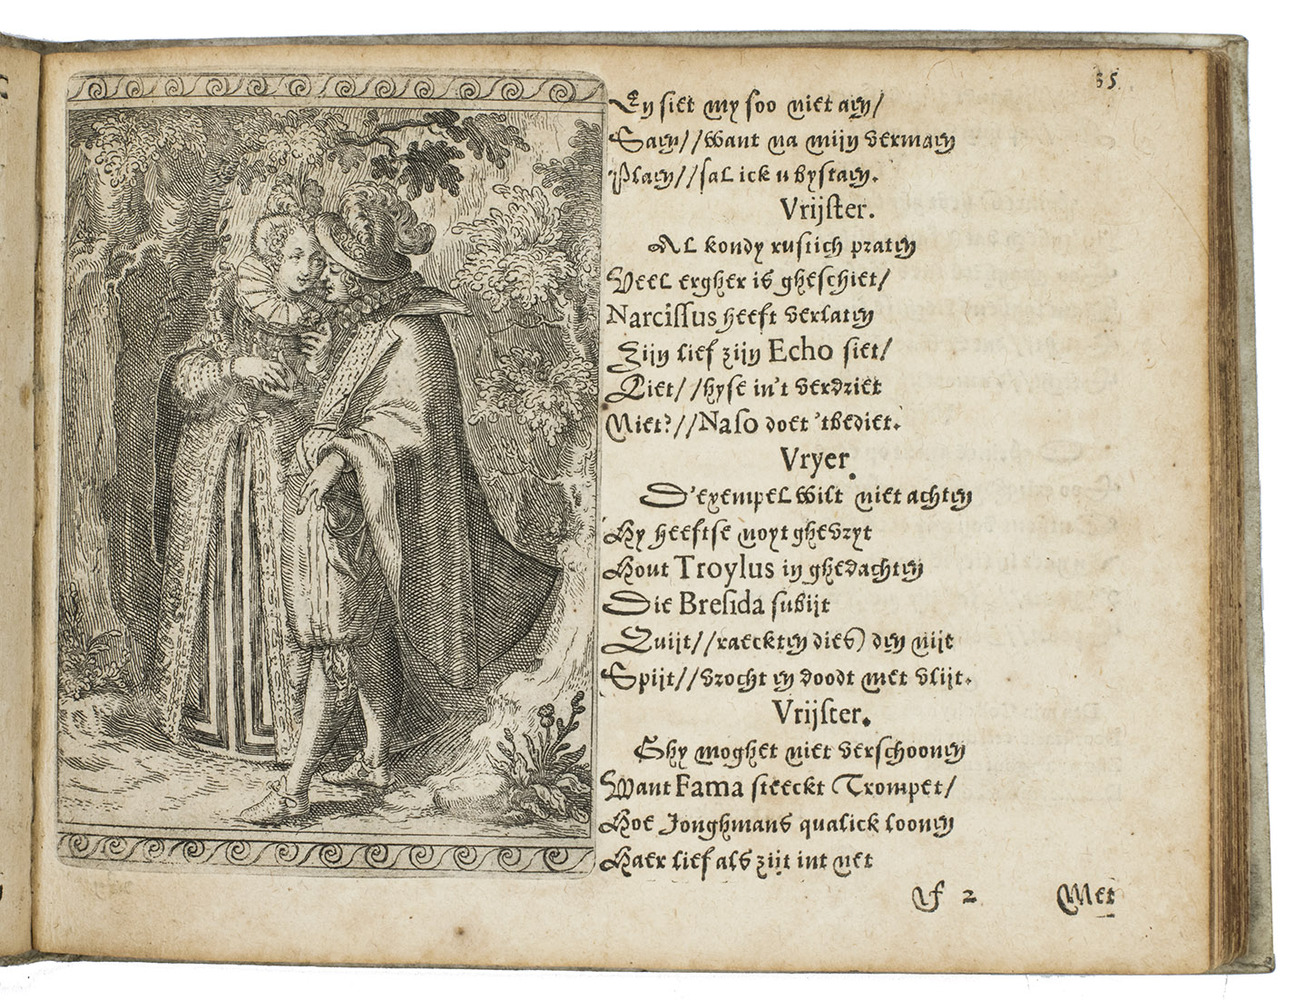 35.
Ey siet my soo niet aen/
Saen//want na mijn vermaen
Plaen//sal ick u bystaen.
Vrijster.
Al kondy rustich praten
Veel ergher is gheschiet/
Narcissus heeft verlaten
Zijn lief zijn Echo siet/
Liet//hyse in't verdriet
Niet?//Naso doet 'tbediet.
Vryer.
D'exempel wilt niet achten
Hy heeftse noyt ghevryt
Hout Troylus in ghedachten
Die Bresida subijt
Quijt//raeckten dies) den nijt
Spijt//vrocht en doodt met vlijt.
Vrijster.
Ghy moghet niet verschoonen
Want Fama steeckt Trompet/
Hoe Jonghmans qualick loonen
Haer lief als zijt int net
f 2 Met